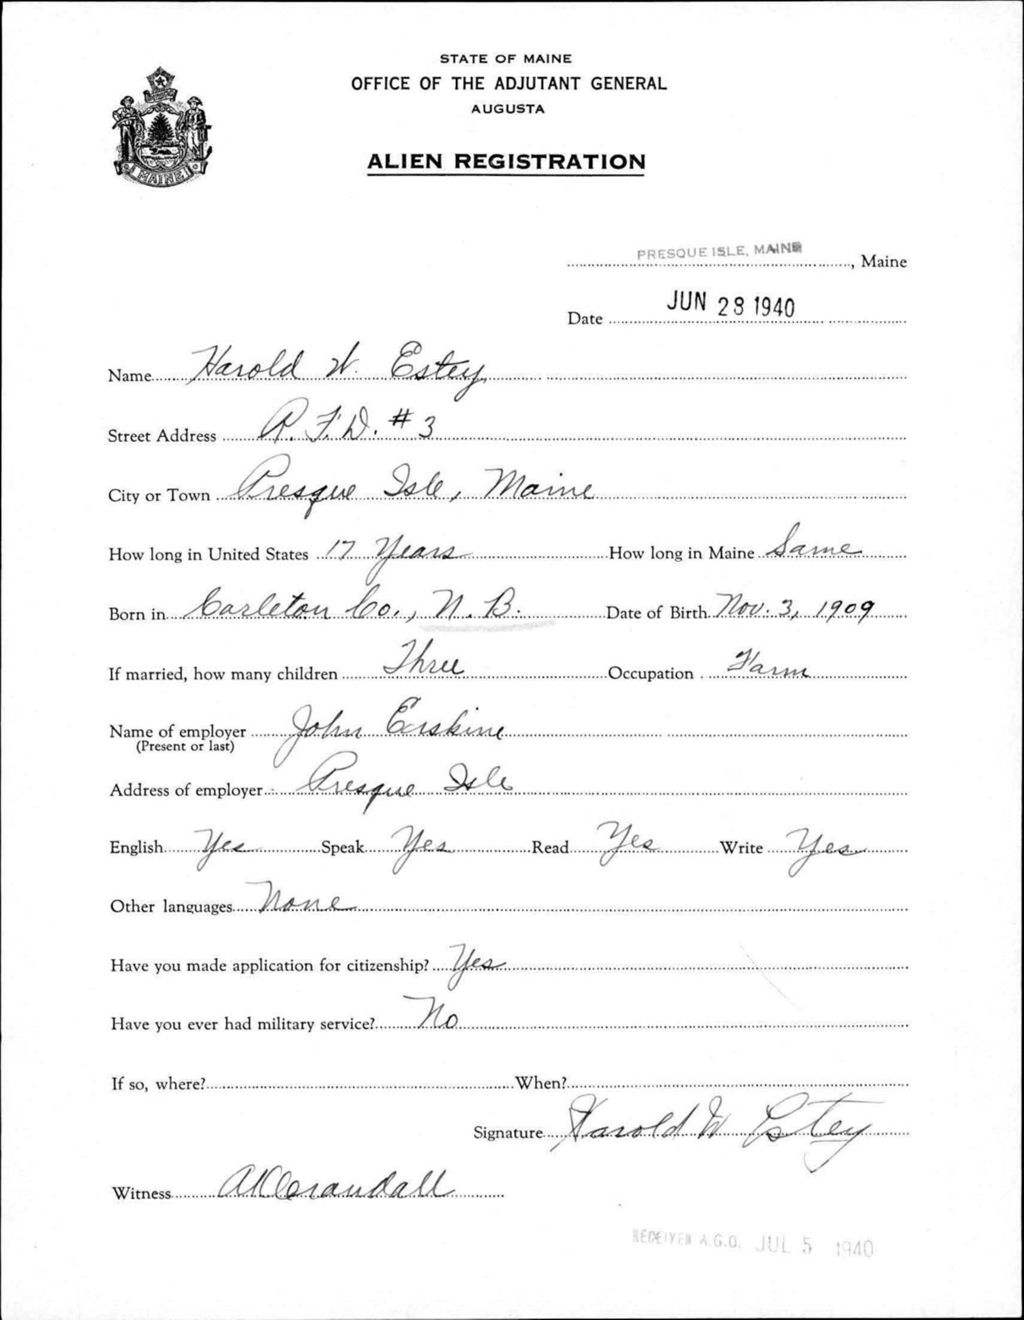 STATE OF MAINE
OFFICE OF THE ADJUTANT GENERAL
AUGUSTA
MAINE
ALIEN REGISTRATION
PRESQUE ISLE, MAINE, Maine
Date JUN 28 1940
Name Harold W. Estey
Street Address R.F.D. #3
City or Town Presque Isle, Maine
How long in United States 17 Years How long in Maine Same
Born in Carleton Co., N.B. Date of Birth Nov. 3, 1909
If married, how many children Three Occupation Farm
Name of employer John Erskine
(Present or last)
Address of employer Presque Isle
English Yes Speak Yes Read Yes Write Yes
Other languages None
Have you made application for citizenship? Yes
Have you ever had military service? No
If so, where? When?
Signature Harold W Estey
Witness AKCrandall
RECEIVED A.G.O. JUL 5 1940